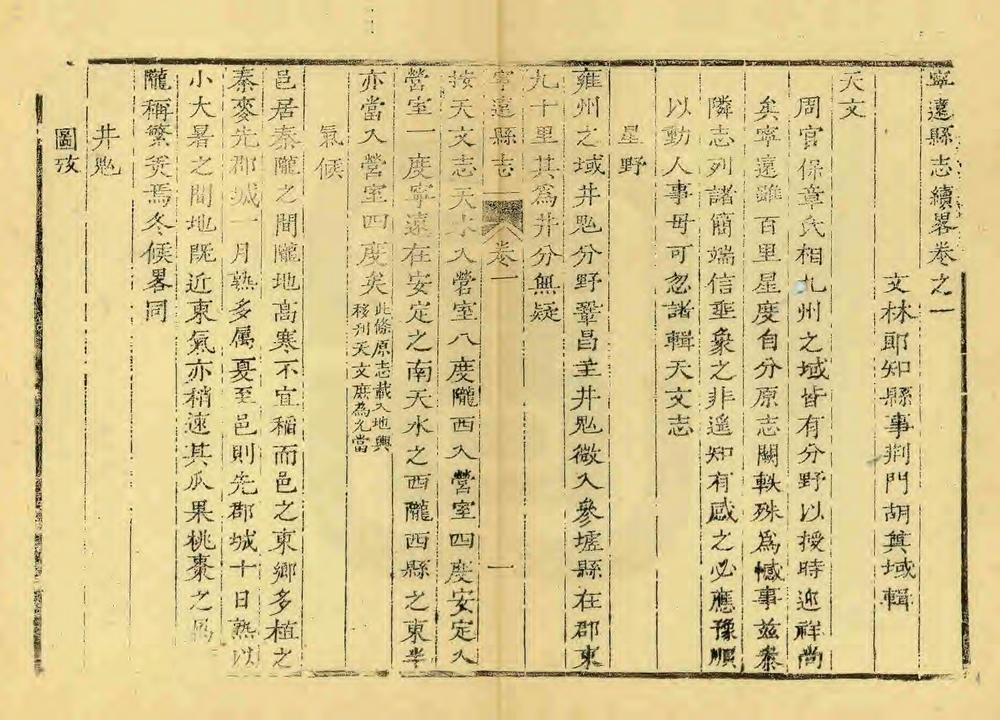 寧遠縣志續畧卷之一
文林郎知縣事荆門胡奠域輯
天文
周官保章氏相九州之域皆有分野以授時迎祥尚
矣寧遠雖百里星度自分原志闕軼殊為憾事兹叅
隣志列諸簡端信垂象之非遥知有感之必應豫順
以動人事毋可忽諸輯天文志
星野
雍州之域井鬼分野鞏昌主井鬼微入參墟縣在郡東
九十里其為井分無疑
寧遠縣志
卷一
一
按天文志天水入營室八度隴西入營室四度安定入
營室一度寧遠在安定之南天水之西隴西縣之東半
亦當入營室四度矣
此條原志載入地輿
移刋天文庶為允當
氣候
邑居秦隴之間隴地高寒不宜稲而邑之東鄉多植之
秦麥先郡城一月熟多属夏至邑則先郡城十日熟以
小大暑之間地既近東氣亦稍速其瓜果桃棗之属
隴稱繁炗焉冬候畧同
井鬼
圖攷